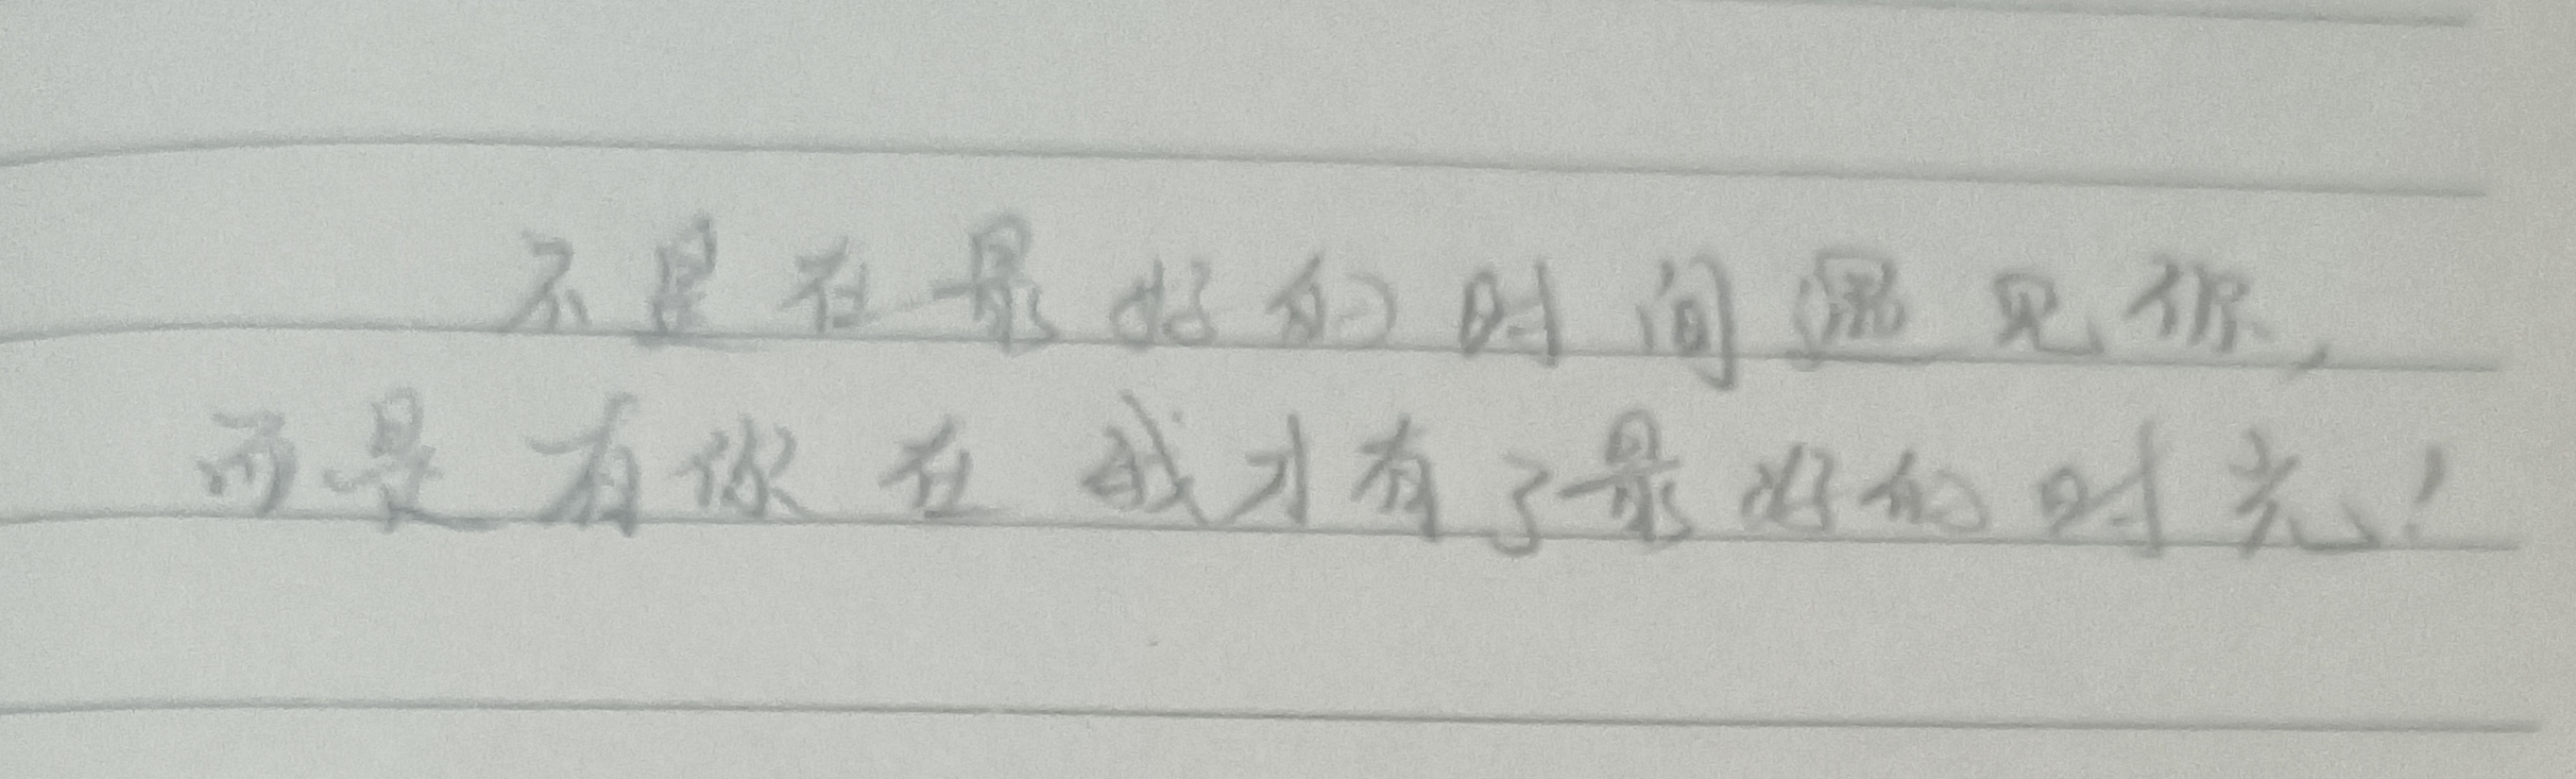 不是在最好的时间遇见你,
而是有你在我才有了最好的时光!